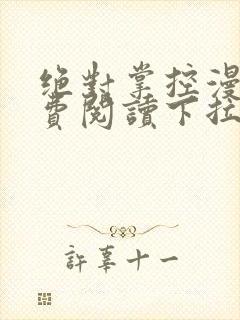 绝對掌控漫
費閱讀下拉
許辜十一